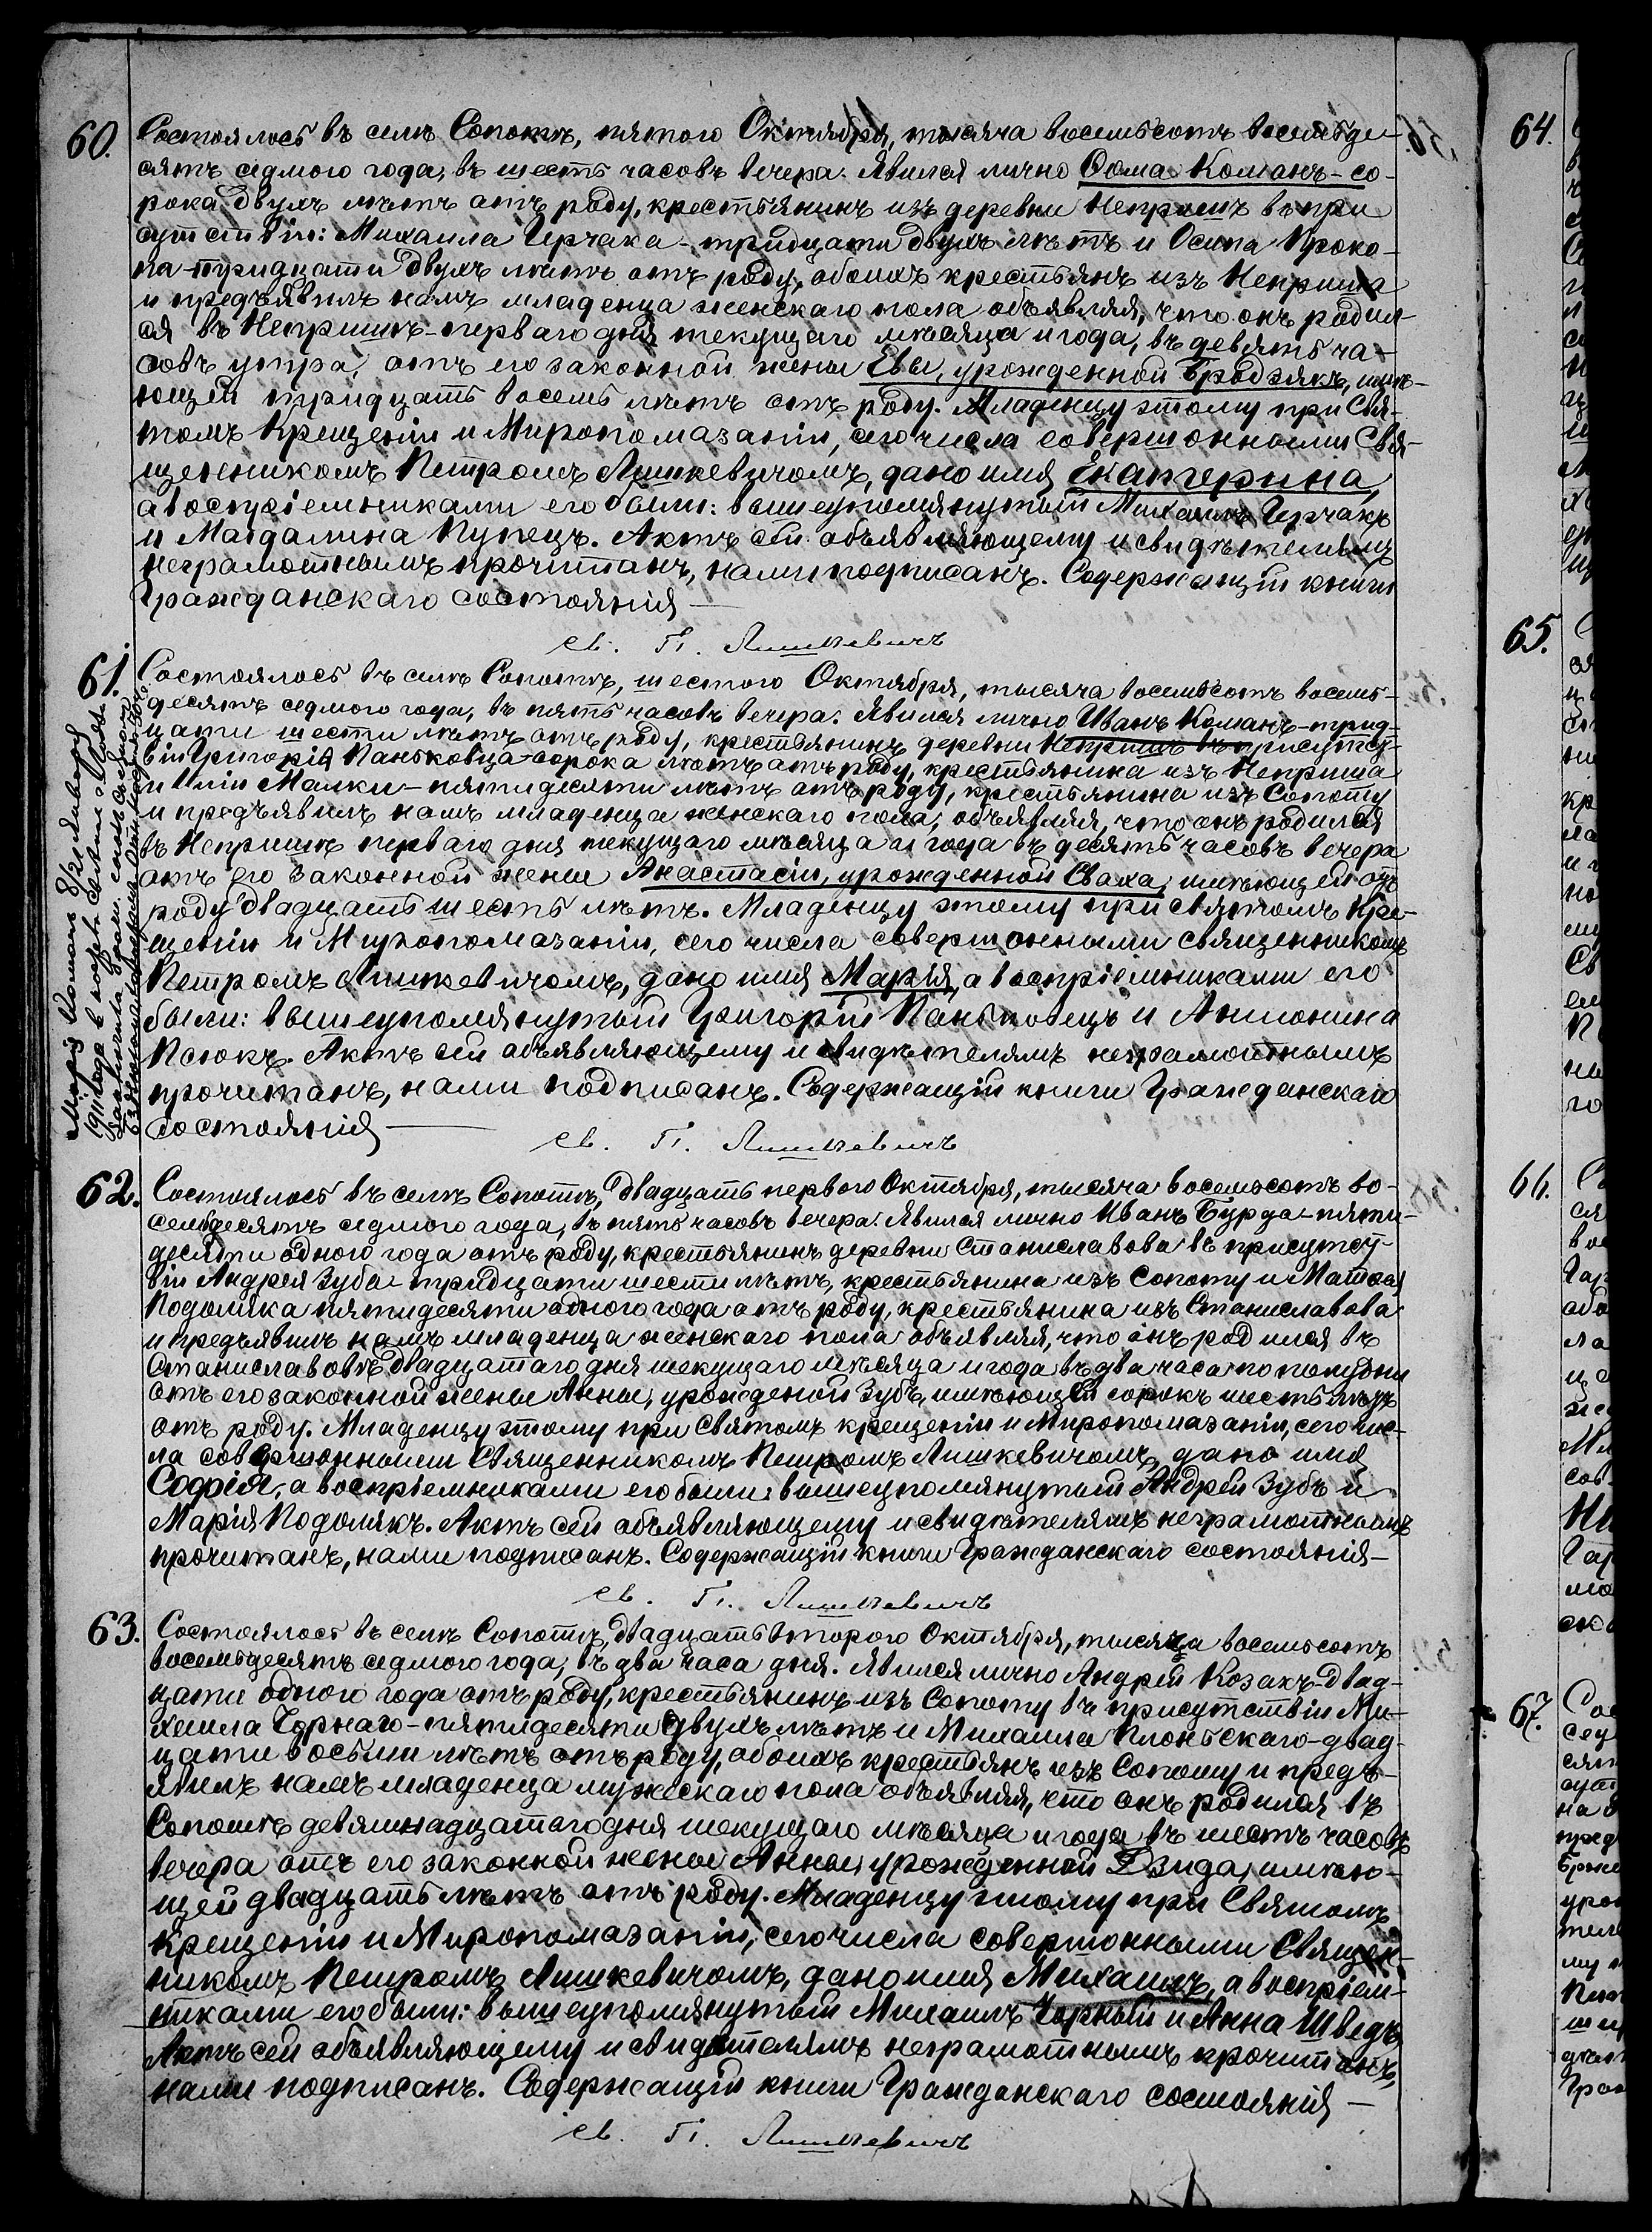 60. Состоялось въ селѣ Сопотѣ, пятого Октября, тысяча восемьсотъ восемьде-
сятъ седмого года, въ шесть часовъ вечера. Явился лично Ѳома Команъ - со-
рока двухъ лѣтъ отъ роду, крестьянинъ изъ деревни Непришъ въ при
сутствіи: Михаила Герчака - тридцати двухъ лѣтъ и Осипа Проко-
па - тридцати двухъ лѣтъ отъ роду, обоихъ крестьянъ изъ Неприша
и предъявилъ намъ младенца женскаго пола объявляя, что онъ родил-
ся въ Непришѣ - перваго дня текущаго мѣсяца и года, въ девять ча-
совъ утра, отъ его законной жены Евы, урожденной Бродзякъ, имѣ-
ющей тридцать восемь лѣтъ отъ роду. Младенцу этому при Свя-
томъ Крещеніи и Миропомазаніи, сего числа совершонными Свя-
щенникомъ Петромъ Лишкевичомъ, дано имя Екатерина,
а воспріемниками его были: вышеупомянутый Михаилъ Герчакъ
и Магдалина Купецъ. Актъ сей объявляющему и свидѣтелямъ
неграмотнымъ прочитанъ, нами подписанъ. Содержащій книги
Гражданскаго состоянія —
св. П. Лишкевичъ
61. Состоялось въ селѣ Сопотѣ, шестого Октября, тысяча восемьсотъ восемь-
десятъ седмого года, въ пять часовъ вечера. Явился лично Иванъ Команъ - трид-
цати шести лѣтъ отъ роду, крестьянинъ деревни Непришъ въ присутст-
віи Григорія Паньковца - сорока лѣтъ отъ роду, крестьянина изъ Неприша
и Иліи Малки - пятидесяти лѣтъ отъ роду, крестьянина изъ Сопоту
и предъявилъ намъ младенца женскаго пола, объявляя, что онъ родился
въ Непришѣ перваго дня текущаго мѣсяца и года въ десять часовъ вечера
отъ его законной жены Анастасіи, урожденной Сваха, имѣющей отъ
роду двадцать шесть лѣтъ. Младенцу этому при святомъ Кре-
щеніи и Миропомазаніи, сего числа совершонными священникомъ
Петромъ Лишкевичомъ, дано имя Марія, а воспріемниками его
были: вышеупомянутый Григорій Паньковецъ и Антонина
Псюкъ. Актъ сей объявляющему и свидѣтелямъ неграмотнымъ
прочитанъ, нами подписанъ. Содержащій книги Гражданскаго
состоянія —
св. П. Лишкевичъ
Марія Команъ 8/21 Января
1911 года въ
62. Состоялось въ селѣ Сопотѣ, двадцать первого Октября, тысяча восемьсотъ во-
семьдесятъ седмого года, въ пять часовъ вечера. Явился лично Иванъ Бурда - пяти-
десяти одного года отъ роду, крестьянинъ деревни Станиславова въ присутст-
віи Андрея Зуба - тридцати шести лѣтъ, крестьянина изъ Сопоту и Матѳея
Подоляка пятидесяти одного года отъ роду, крестьянина изъ Станиславова
и предъявилъ намъ младенца женскаго пола объявляя, что онъ родился въ
Станиславовѣ двадцатаго дня текущаго мѣсяца и года въ два часа по полудни
отъ его законной жены Анны, урожденой Зубъ, имѣющей сорокъ шесть лѣтъ
отъ роду. Младенцу этому при Святомъ крещеніи и Миропомазаніи, сего чис-
ла совершонными Священникомъ Петромъ Лишкевичомъ, дано имя
Софія, а воспріемниками его были: вышеупомянутый Андрей Зубъ и
Марія Подолякъ. Актъ сей объявляющему и свидѣтелямъ неграмотнымъ
прочитанъ, нами подписанъ. Содержащій книги Гражданскаго состоянія —
св. П. Лишкевичъ
63. Состоялось въ селѣ Сопотѣ, двадцать второго Октября, тысяча восемьсотъ
восемьдесятъ седмого года, въ два часа дня. Явился лично Андрей Козакъ - двад-
цати одного года отъ роду, крестьянинъ изъ Сопоту въ присутствіи Ми-
хаила Чорнаго - пятидесяти двухъ лѣтъ и Михаила Плоньскаго - двад-
цати восьми лѣтъ отъ роду, обоихъ крестьянъ изъ Сопоту и предъ-
явилъ намъ младенца мужескаго пола объявляя, что онъ родился въ
Сопотѣ девятнадцатаго дня текущаго мѣсяца и года въ шесть часовъ
вечера отъ его законной жены Анны, урожденной Дзида, имѣю-
щей двадцать лѣтъ отъ роду. Младенцу этому при Святомъ
крещеніи и Миропомазаніи, сего числа совершонными Священ-
никомъ Петромъ Лишкевичомъ, дано имя Михаилъ, а воспріем-
никами его были: вышеупомянутый Михаилъ Чорный и Анна Шведъ
Актъ сей объявляющему и свидѣтелямъ неграмотнымъ прочитанъ,
нами подписанъ. Содержащій книги Гражданскаго состоянія —
св. П. Лишкевичъ
64.
65.
66.
67.